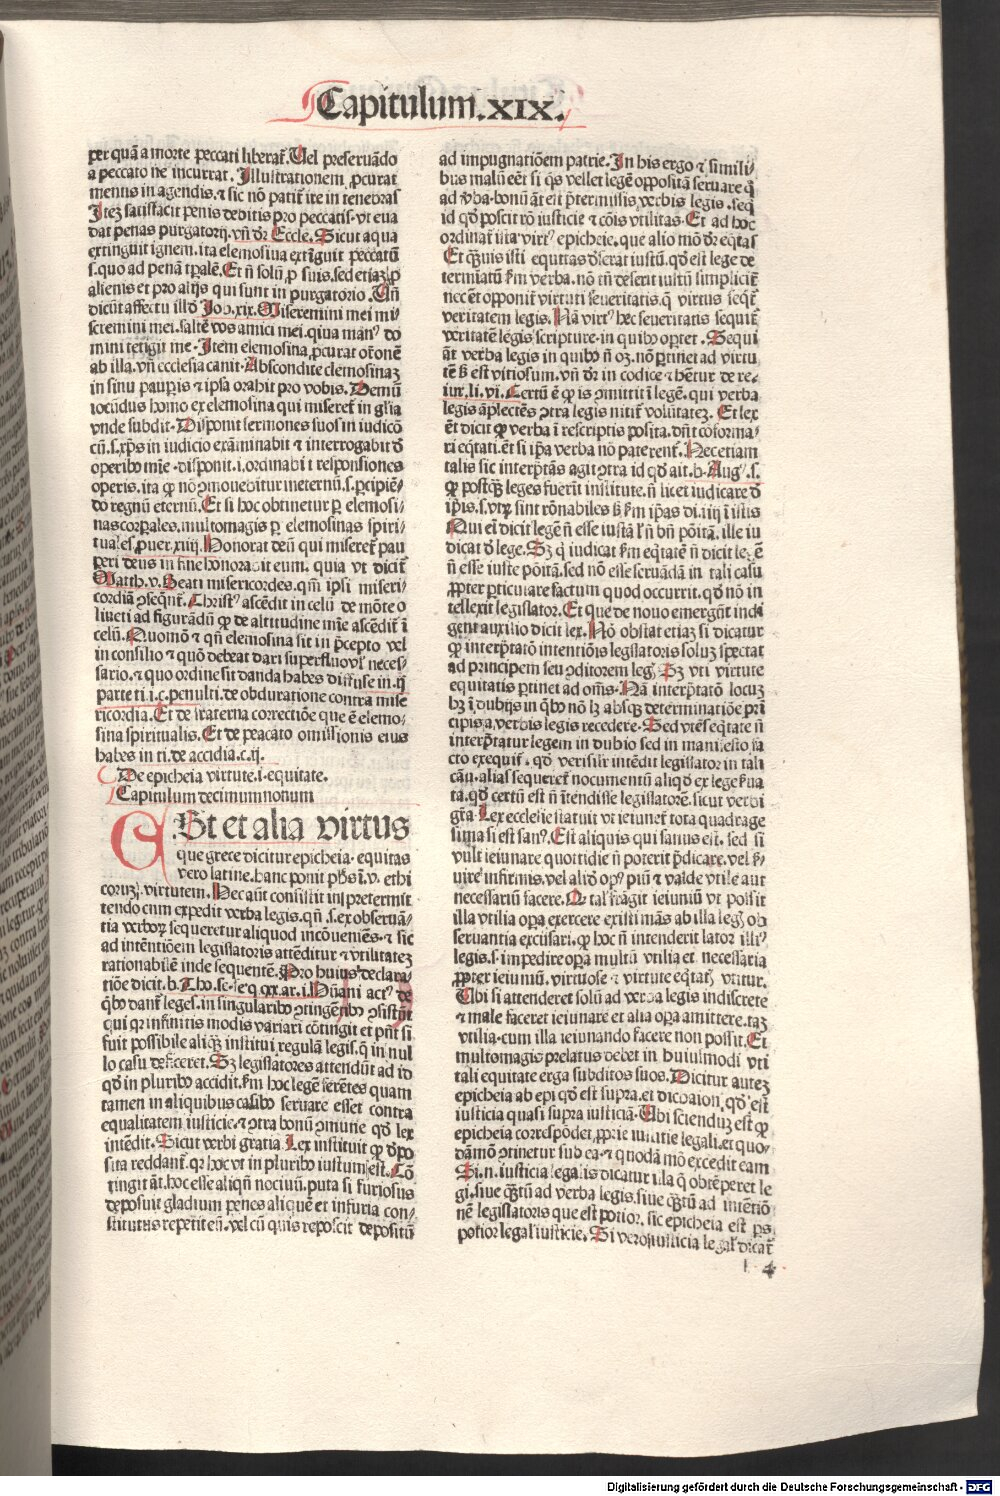 Capitulum.XIX.
per quā a morte peccati liberat᷑. Uel preseruādo
a peccato ne incurrat. Illustrationem ꝓcurat
mentis in agendis. ⁊ sic nō patit᷑ ire in tenebras
Itez satisfacit penis debitis pro peccatis. vt eua
dat penas purgatorij. vn̄ dr̄ Eccle. Sicut aqua
extinguit ignem. ita elemosina extīguit peccatū
s. quo ad penā tꝑalē. Et n̄ solū ꝓ suis. sed etiaz ꝓ
alienis et pro alijs qui sunt in purgatorio. Un̄
dicūt affectu illd̓ Job. xix. Miseremini mei mi
seremini mei. saltē vos amici mei. quia manꝰ do
mini tetigit me. Item elemosina ꝓcurat or̄onē
ab illa. vn̄ ecclesia canit. Abscondite elemosinaz
in sinu pauꝑis ⁊ ipsa orabit pro vobis. Demū
iocūdus homo ex elemosina qui miseret᷑ in gl̄ia
vnde subdit. Disponit sermones suos in iudicō
cū. s. xp̄s in iudicio exāminabit ⁊ interrogabit d̓
operibꝰ mīe. disponit. i. ordinabit responsiones
operis. ita ꝙ nō ꝯmouebitur in eternū. s. ꝑcipiē-
do regnū eternū. Et si hoc obtinetur ꝑ elemosi-
nas corꝑales. multomagis ꝑ elemosinas spiri-
tuales. ꝓuer. xiiij. Honorat deū qui miseret᷑ pau
peri deus in fine honorabit eum. quia vt dicit᷑
Matth. v. Beati misericordes. qm̄ ipsi miseri-
cordiā ꝯseqūt᷑. Christꝰ ascēdit in celū de mōte o
liueti ad figurādū ꝙ de altitudine mīe ascēdit᷑ ī
celū. Quomō ⁊ qn̄ elemosina sit in p̄cepto vel
in consilio ⁊ quō debeat dari superfluovl᷑ neces-
sario. ⁊ quo ordine sit danda habes diffuse in. ij
parte ti. i. c. penulti. de obduratione contra mise
ricordia. Et de fraterna correctiōe que ē elemo-
sina spiritualis. Et de peacato omissionis eius
habes in ti. de accidia. c. ij.
De epicheia virtute. i. equitate.
Capitulum decimumnonum
Est et alia virtus
que grece dicitur epicheia. equitas
vero latine. hanc ponit ph̄s ī. v. ethi
coruz. virtutem. Hec aūt consistit in pretermit
tendo cum expedit verba legis. qn̄. s. ex obseruā-
tia verborꝝ sequeretur aliquod incōueniēs. ⁊ sic
ad intentiōem legislatoris attēditur ⁊ vtilitatez
rationabilē inde sequentē. Pro huius declara-
tiōe dicit. b. Tho. se. se. q. xx. ar. i. Hūani actꝰ de
qͥbꝰ dant᷑ leges. in singularibꝰ ꝯtingētibꝰ ꝯsistūt
qui qꝛ infinitis modis variari cōtingit et pn̄t si
fuit possibile aliqͣꝫ institui regulā legis. q̄ in nul
lo casu deficeret. Sꝫ legislatores attendūt ad id
qd̓ in pluribꝰ accidit. ẜm hoc legē ferētes quam
tamen in aliquibus casibꝰ seruare esset contra
equalitatem iusticie. ⁊ ꝯtra bonū ꝯmune qd̓ lex
intēdit. Sicut verbi gratia. Lex instituit ꝙ d̓po
sita reddant᷑. qꝛ hoc vt in pluribꝰ iustum est. Cō
tingit āt. hoc esse aliqn̄ nociuū. puta si furiosus
deposuit gladium penes aliquē et infuria con-
stitutus repetit eū. vel cū quis reposcit depositū
ad impugnatiōem patrie. In his ergo ⁊ simili-
bus malū eēt si q̄s vellet legē oppositā seruare q̄
ad v̓ba. bonū āt est p̄termissis v̓erbis legis. seq̄
id qd̓ poscit rō iusticie ⁊ cōis vtilitas. Et ad hoc
ordinat᷑ ista virtꝰ epicheie. que alio mō dr̄ eq̄tas
Et qͣuis isti equitas d̓serat iustū. qd̓ est lege de
termiatū ẜm verba. nō tn̄ deserit iustū simplicit᷑
nec ēt opponit᷑ virtuti seueritatis. q̄ virtus seqͥt᷑
veritatem legis. Nā virtꝰ hec seueritatis sequit᷑
veritatē legis scripture. in quibꝰ oꝑtet. Sequi
āt verba legis in quibꝰ n̄ oꝫ. nō ꝑtinet ad virtu
tē ꝫ est vitiosum. vn̄ dr̄ in codice ⁊ hētur de re.
iur. li. vi. Certū ē ꝙ is ꝯmittit ī legē. qui verba
legis āplectēs ꝯtra legis nitit᷑ volūtatez. Et lex
ēt dicit ꝙ verba ī rescriptis posita. dn̄t cōforma-
ri eq̄tati. ēt si ip̄a verba nō paterent᷑. Nec etiam
talis sic interp̄tās agit ꝯtra id qd̓ ait. b. Augꝰ. s.
ꝙ postqͣꝫ leges fuerīt institute. n̄ licet iudicare d̓
ip̄is. s. vtꝝ sint rōnabiles ꝫ ẜm ip̄as di. iiij ī istis
Qui eī dicit legē n̄ esse iustā l᷑ n̄ bn̄ pōitā. ille iu
dicat d̓ lege. Sꝫ q̄ iudicat ẜm eq̄taiē n̄ dicit legē
n̄ esse iuste pōitā. sed nō esse seruādā in tali casu
ꝓpter ꝑticulare factum quod occurrit. qd̓ nō in
tellexit legislator. Et que de nouo emergūt indi
gent auxilio dicit lex. Nō obstat etiaz si dicatur
ꝙ interp̄tatō intentiōis legislatoris soluz spectat
ad principem seu ꝯditorem leg. Sꝫ vti virtute
equitatis ꝑtinet ad om̄s. Nā interp̄tatō locuꝫ
hꝫ ī dubijs in qͥbꝰ nō lꝫ absqꝫ determinatiōe pri
cipis a verbis legis recedere. Sed vtēs eq̄tate n̄
interp̄tatur legem in dubio sed in manifesto fa
cto exequit᷑. qd̓ verisilr̄ intēdit legislator in tali
cāu. alias sequeret᷑ nocumentū aliqd̓ ex lege ẜua
ta. qd̓ certū est n̄ ītendisse legislatorē. sicut verbi
gr̄a. Lex ecclesie statuit vt ieiunet᷑ tota quadrage
sima si est sanꝰ. Est aliquis qui sanus est. sed si
vult ieiunare quottidie n̄ poterit p̄dicare. vel ẜ-
uire infirmis. vel aliqd̓ opꝰ piū ⁊ valde vtile aut
necessariū facere. Qꝛ tal᷑ frāgit ieiuniū vt possit
illa vtilia oꝑa exercere existimās ab illa leg ob
seruantia excusari. ꝙ hoc n̄ intenderit lator illiꝰ
legis. s. impedire oꝑa multū vtilia et necessaria
ꝓpter ieiuniū. virtuose ⁊ virtute eq̄tat vtitur.
Ubi si attenderet solū ad verba legis indiscrete
⁊ male faceret ieiunare et alia oꝑa omittere. taꝫ
vtilia. cum illa ieiunando facere non possit. Et
multomagis prelatus debet in huiusmodi vti
tali equitate erga subditos suos. Dicitur autez
epicheia ab epi qd̓ est supra. et dichaion. qd̓ est
iusticia quasi supra iusticiā. Ubi sciendūz est ꝙ
epicheia correspōdet ꝓprie iusticie legali. et quo-
dāmō ꝯtinetur sub ea. ⁊ quodā mō excedit eam
Si. n. iusticia legalis dicatur illa q̄ obtēperet le
gi. siue qͣꝫtū ad verba legis. siue qͣꝫtū ad intētiō
nē legislatoris que est potior. sic epicheia est ꝑs
potior legal᷑ iusticie. Si vero iusticia legal᷑ dicat᷑
l 4
Digitalisierung gefördert durch die Deutsche Forschungsgemeinschaft - DFG